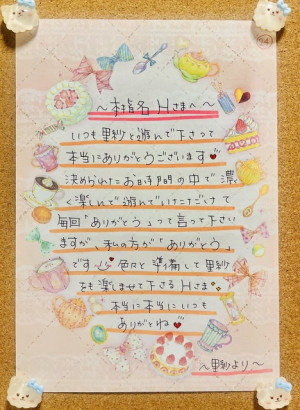 〜本指名Hさまへ〜
いつも里紗と遊んで下さって
本当にありがとうございます
決められたお時間の中で濃
く楽しんで遊んで頂けただけで
毎回「ありがとう」って言って下さい
ますが、私の方が「ありがとう」
です 色々と準備して里紗
をも楽しませて下さるHさま
本当に本当にいつも
ありがとね
〜里紗より〜